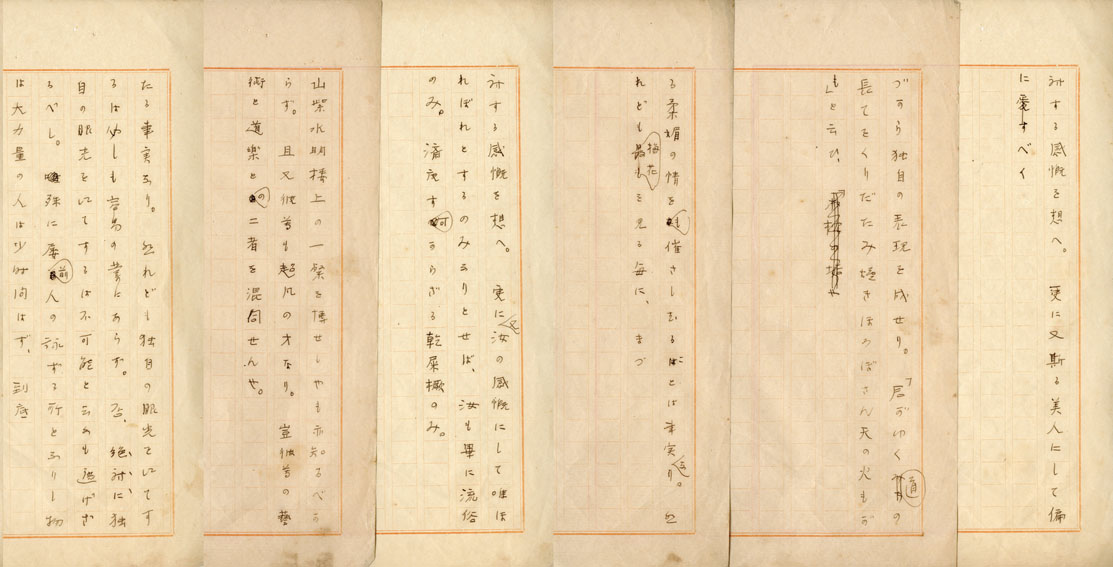 対する感慨を想へ。更に又斯る美人にして偏
に愛すべく
づすら独自の表現を成せり。「君がゆく道の
長てをくりだたみ焼きほろぼさん天の火もが
も」と云ひ、
る柔媚の情を催さしむることは事実なり。然
れども梅花を見る毎に、まづ
対する感慨を想へ。更に汝の感慨にして唯ほ
ればれとするのみなりとせば、汝も畢に流俗
のみ。済度す可からざる乾屎橛のみ。
山紫水明楼上の一粲を博せしやも亦知るべか
らず。且又彼等も超凡の才なり。豈彼等の藝
術と道楽との二者を混同せんや。
たる事実なり。然れども独自の眼光を以てす
るは必しも容易の業にあらず。否、絶対に独
自の眼光を以てするは不可能と云ふも妨げざ
るべし。殊に屡前人の詠ずる所となりし物
は大力量の人は少時問はず、到底